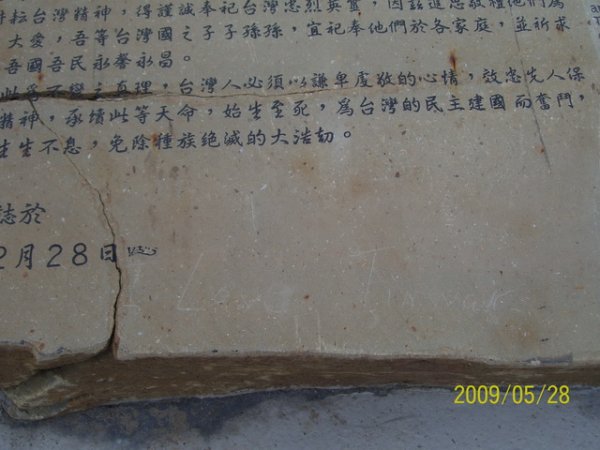 耕耘台灣精神，得謹誠奉祀台灣忠烈英
大愛，吾等台灣國之子子孫孫，宜祀奉他們於各家庭，並祈求
吾國吾民永馨永昌。
此為不變之真理，台灣人必須以謙卑虔敬的心情，效忠先人保
精神，承續此等天命，始生至死，為台灣的民主建國而奮鬥，
生生不息，免除種族絶滅的大浩劫。
誌於
2月28日
I Love Taiwan
2009/05/28